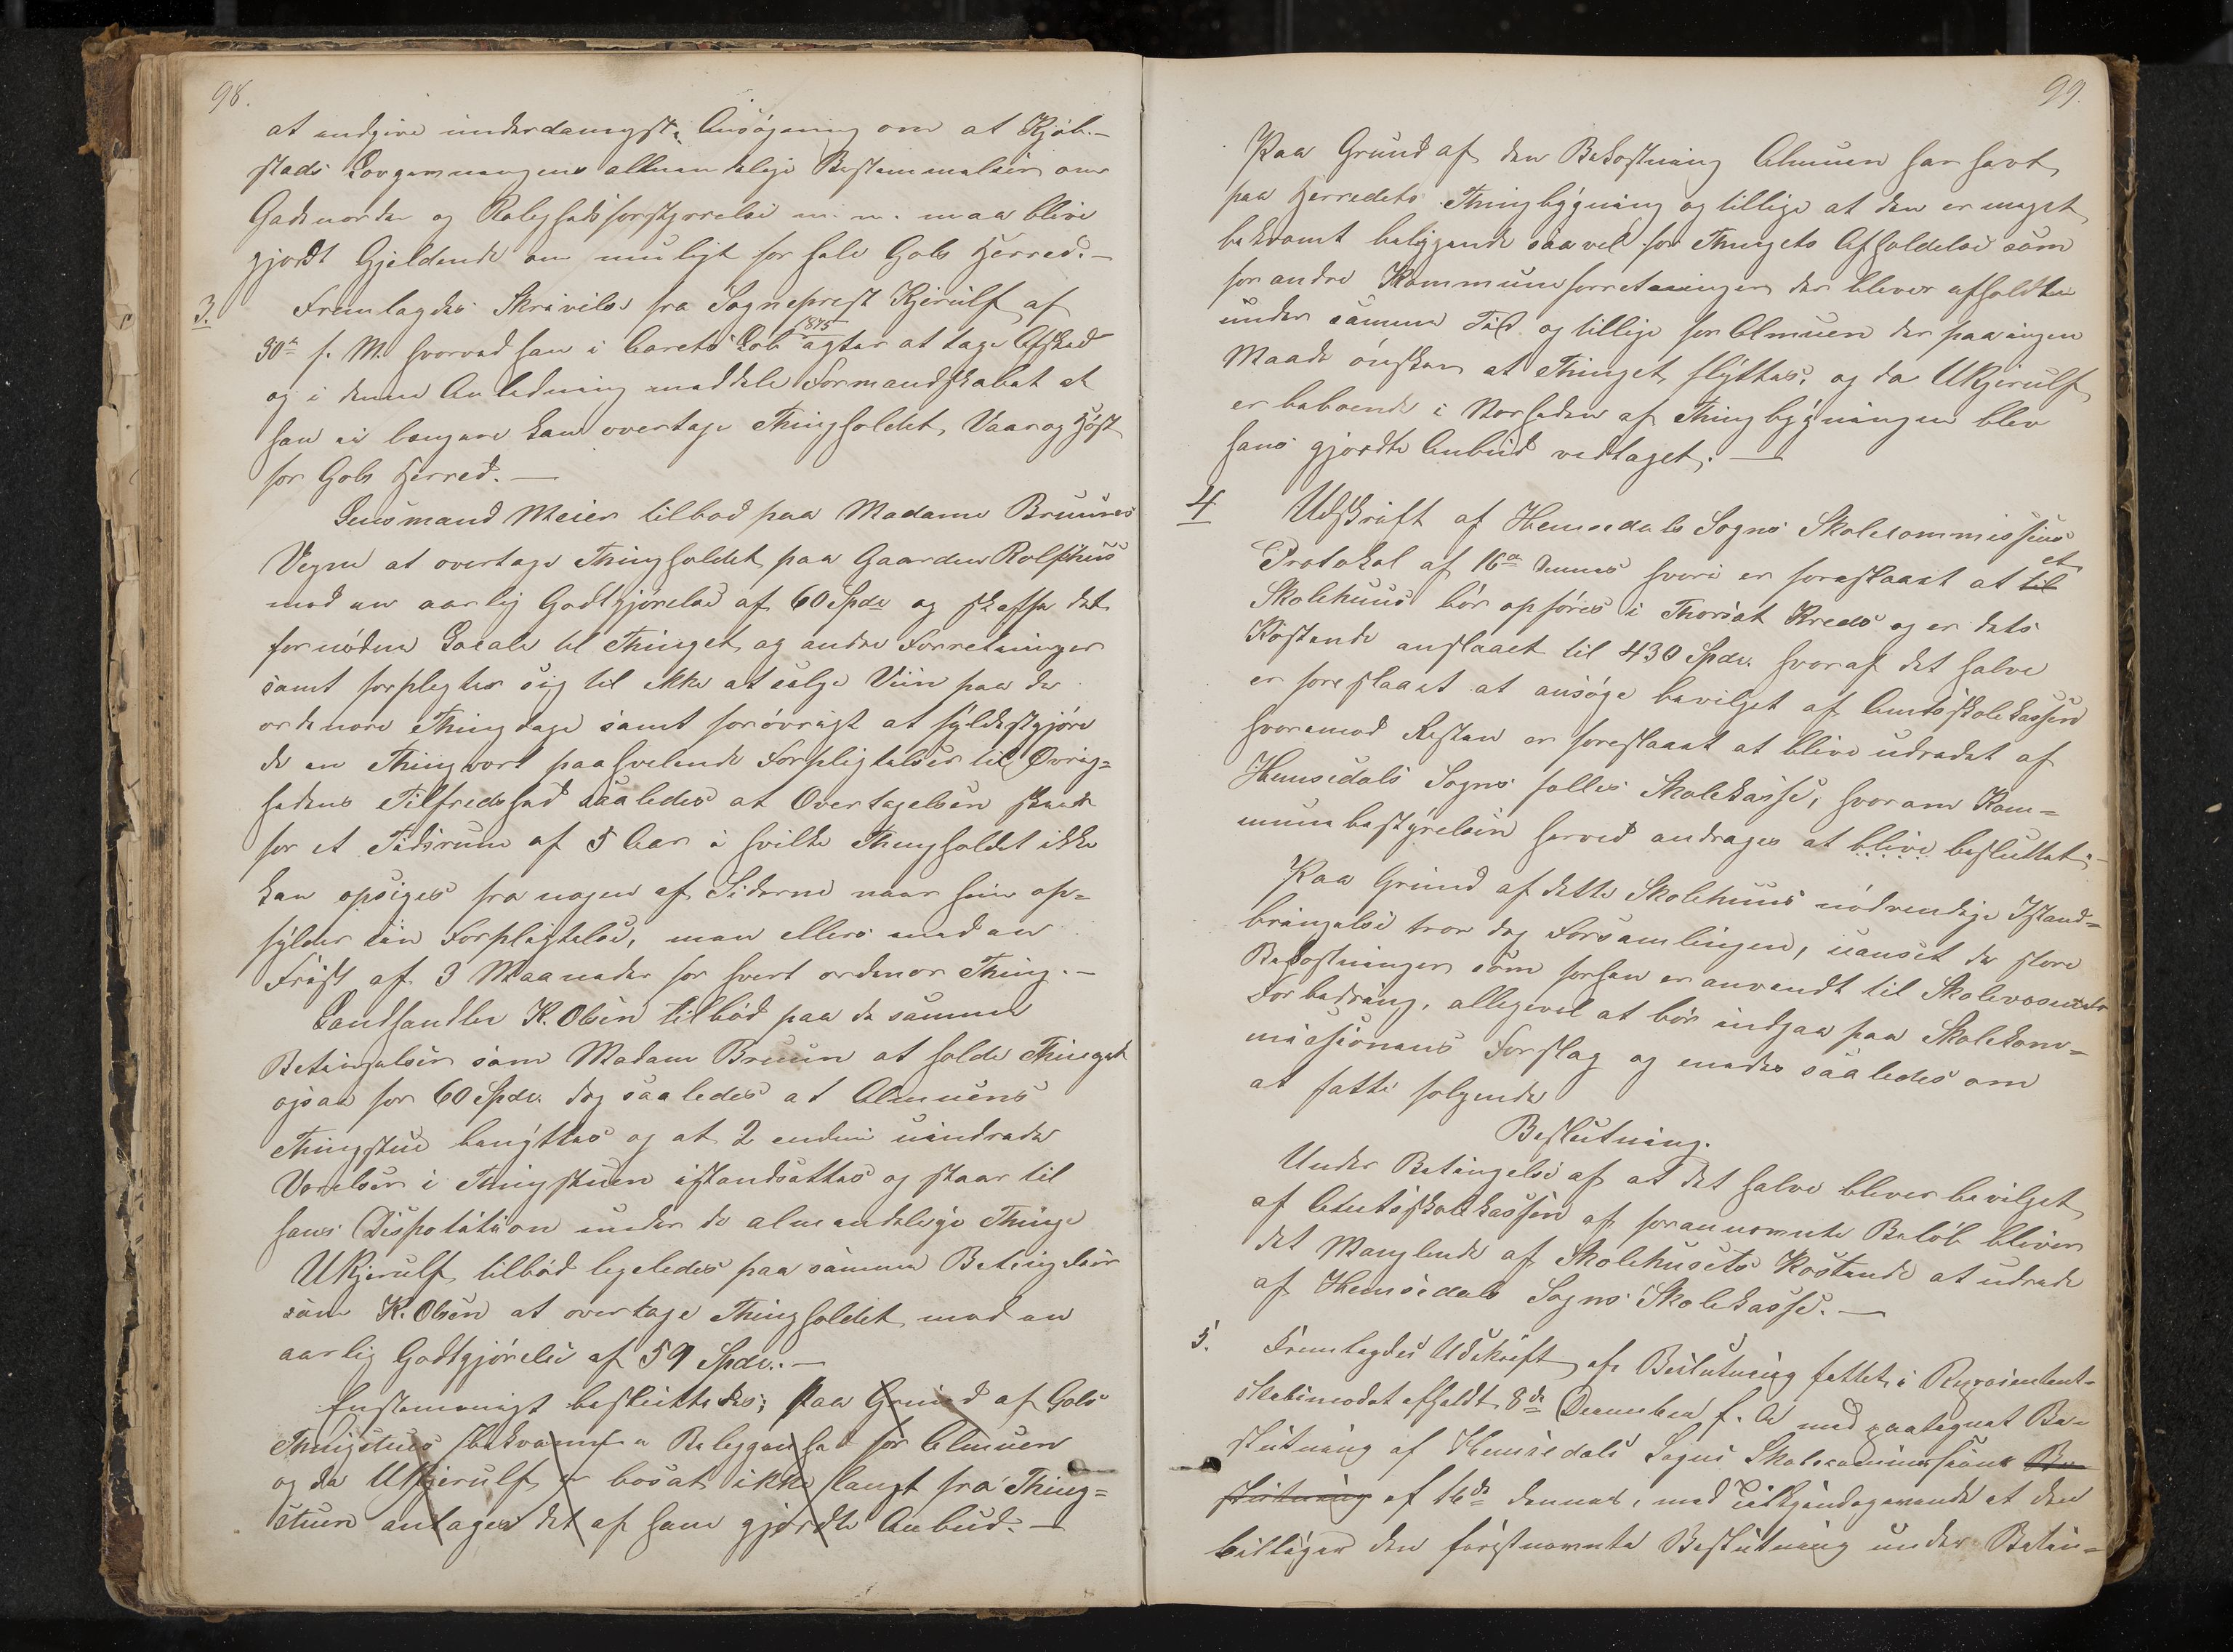 98.
at andgive underdanigst Ansøgning om at Kjøb-
stads Lovgivningens almindelige Bestemmelser om
Gadeuorden og Roligheds forstyrrelse m. m. maa blive
gjordt Gjeldende om muligt for hele Gols Herred. –
3. Fremlagdes Skrivelse fra Sogneprest Kjerulf af
30te f. M. hvorved han i Aarets Løb 1875 agter at tage Afsked
og i denne Anledning meddele Formandskabet at
han ei længere kan overtage Thingholdet, Vaar og Høst
for Gols Herred. –
Lensmand Meier tilbød paa Madame Bruuns
Vegne at overtage Thingholdet paa Gaarden Rolfshus
mod en aarlig Godtgjørelse af 60 Spdr og skaffe det
fornødne Locale til Thinget og andre Forretninger
samt forpligter sig til ikke at sælge Viin paa de
ordenære Thingdage samt forøvrigt at fyldestgjøre
de en Thingvert paahvilende Forpligtelser til Øvrig=
hedens Tilfredshed saaledes at Overtagelsen skeede
for et Tidsrum af 5 Aar i hvilke Thingholdet ikke
kan opsiges fra nogen af Siderne naar hun op=
fylder sin Forpligtelse, men ellers med en
Frist af 3 Maaneder for hvert ordenær Thing. –
Landhandler K. Olsen tilbød paa de samme
Betingelser som Madam Bruun at holde Thinget
ogsaa for 60 Spdr. dog saaledes at Almuens
Thingstue benyttes og at 2 endnu uindredede
Værelser i Thingstuen istandsættes og staar til
hans Disposition under de almindelige Thinge
U Kjerulf tilbød ligeledes paa samme Betingelser
som K. Olsen at overtage Thingholdet mod en
aarlig Godtgjørelse af 59 Spdr. –
Enstemmigt besluttedes; Paa Grund af Gols
Thingstues bekvemme Beliggenhed for Almuen
og da U Kjerulf er bosat ikke langt fra Thing=
stuen antages det af ham gjordte Anbud. –
99.
Paa Grund af den Bekostning Almuen har havt
paa Herredets Thingbygning og tillige at den er meget
bekvemt beliggende saavel for Thingets Afholdelse som
for andre Kommuneforretninger der bliver afholdte
under samme Tid og tillige for Almuen der paa ingen
Maade ønsker at Thinget flyttes, og da U Kjerulf
er beboende i Nærheden af Thingbygningen blev
hans gjordte Anbud vedtaget. –
4 Udskrift af Hemsedals Sogns Skolecommissions
Protokol af 16de dennes hvori er foreslaaet at til et
Skolehuus bør opføres i Thorset Kreds og er dets
Kostende anslaaet til 430 Spdr. hvoraf det halve
er foreslaaet at ansøge bevilget af Amtsskolekassen
hvoremod Resten er foreslaaet at blive udredet af
Hemsedals Sogns fælles Skolekasse, hvorom Kom=
munebestyrelsen herved andrages at blive besluttet. –
Paa Grund af dette Skolehuus nødvendige Istand=
bringelse tror dog Forsamlingen, uanset de store
Bekostninger som forhen er anvendt til Skolevæsenets
Forbedring, allegevel at bør indgaa paa Skolekom=
missionens Forslag og enedes saaledes om
at fatte følgende
Beslutning.
Under Betingelse af at det halve bliver bevilget
af Amtsskolekassen af forannævnte Beløb bliver
det Manglende af Skolehusets Kostende at udrede
af Hemsedals Sogns Skolekasse. –
5. Fremlagdes Udskrift af Beslutning fattet i Repræsentent-
skabsmødet afholdt 8de December f. A med paategnet Be=
slutning af Hemsedals Sogns Skolecommissions Be=
slutning af 16de dennes, med Tilkjendegivende at den
billiger den førstnævnte Beslutning under Betin=